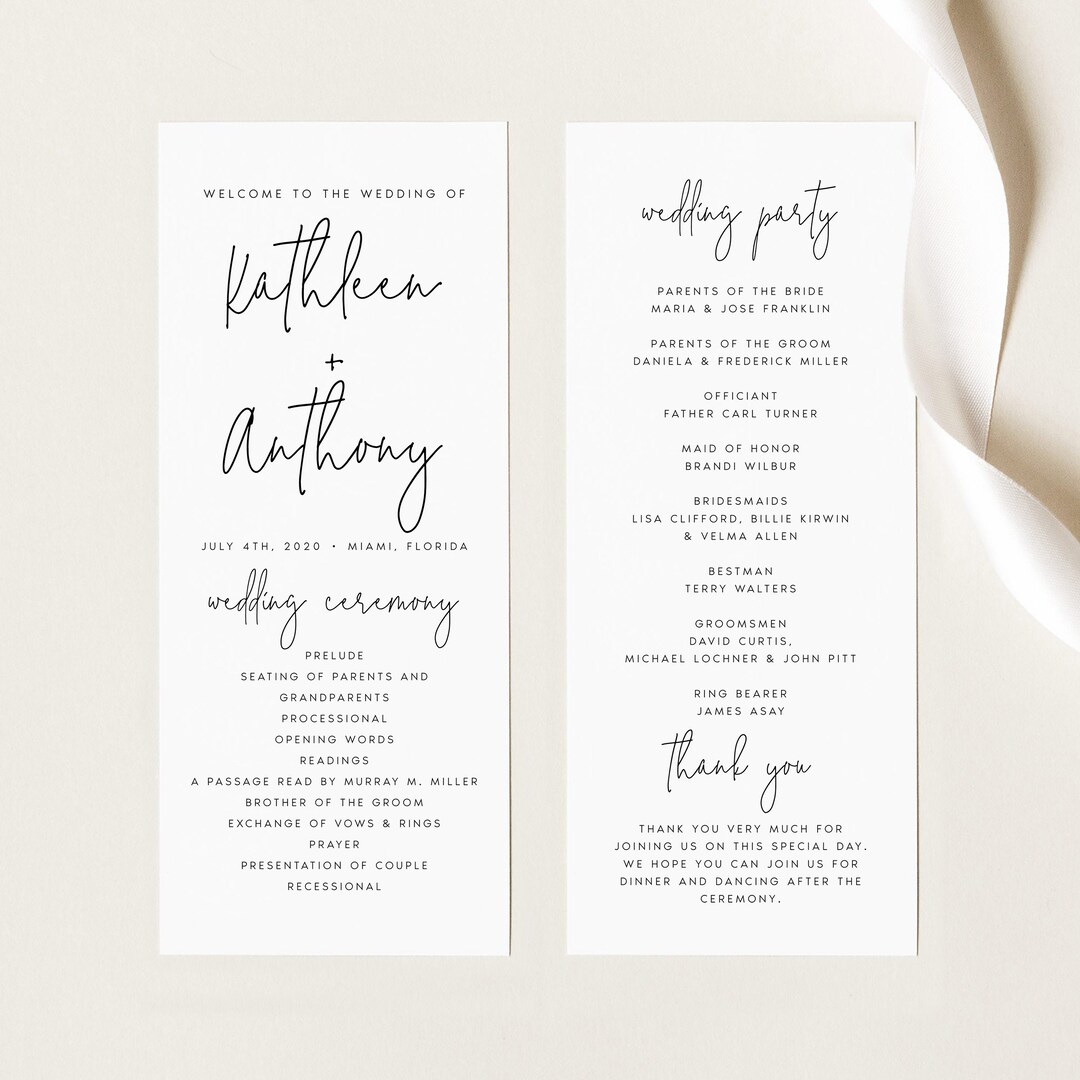 WELCOME TO THE WEDDING OF
Kathleen
+
Anthony
JULY 4TH, 2020 • MIAMI, FLORIDA
wedding ceremony
PRELUDE
SEATING OF PARENTS AND
GRANDPARENTS
PROCESSIONAL
OPENING WORDS
READINGS
A PASSAGE READ BY MURRAY M. MILLER
BROTHER OF THE GROOM
EXCHANGE OF VOWS & RINGS
PRAYER
PRESENTATION OF COUPLE
RECESSIONAL
wedding party
PARENTS OF THE BRIDE
MARIA & JOSE FRANKLIN
PARENTS OF THE GROOM
DANIELA & FREDERICK MILLER
OFFICIANT
FATHER CARL TURNER
MAID OF HONOR
BRANDI WILBUR
BRIDESMAIDS
LISA CLIFFORD, BILLIE KIRWIN
& VELMA ALLEN
BESTMAN
TERRY WALTERS
GROOMSMEN
DAVID CURTIS,
MICHAEL LOCHNER & JOHN PITT
RING BEARER
JAMES ASAY
thank you
THANK YOU VERY MUCH FOR
JOINING US ON THIS SPECIAL DAY.
WE HOPE YOU CAN JOIN US FOR
DINNER AND DANCING AFTER THE
CEREMONY.